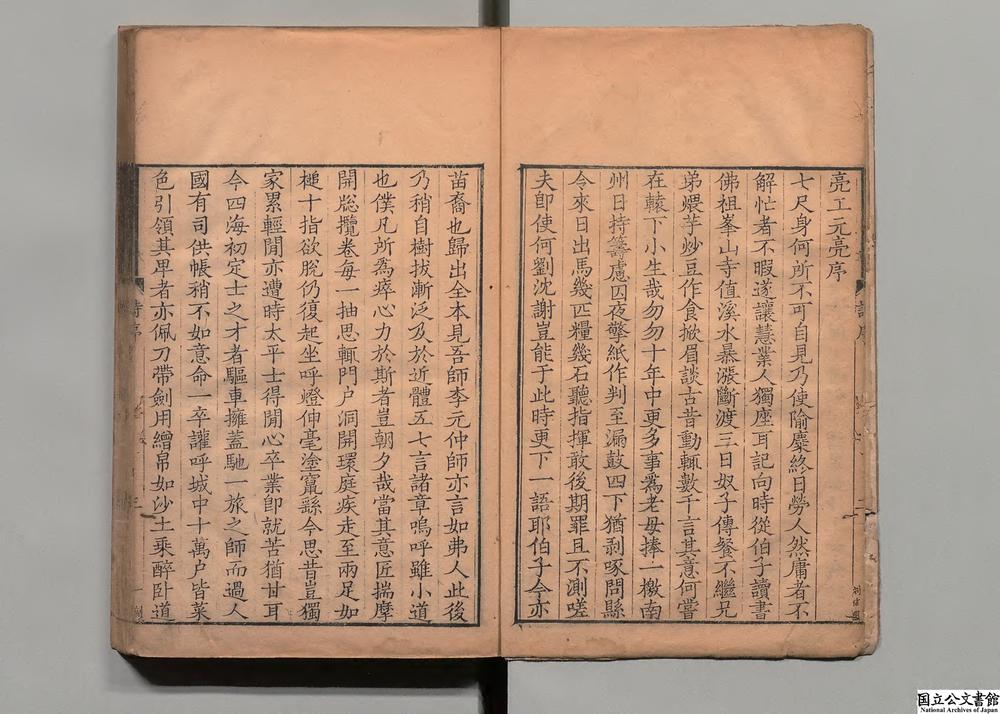 亮工元亮序
七尺身何所不可自見乃使隃麋終日勞人然庸者不
解忙者不暇遂讓慧業人獨座耳記向時從伯子讀書
佛祖峯山寺值溪水暴漲斷渡三日奴子傳餐不繼兄
弟煨芋炒豆作食掀眉談古昔動輒數千言其意何嘗
在轅下小生哉勿勿十年中更多事爲老母捧一檄南
州日持籌慮囚夜擎紙作判至漏鼓四下猶剥啄問縣
令來日出馬幾匹糧幾石聽指揮敢後期罪且不測嗟
夫卽使何劉沈謝豈能于此時更下一語耶伯子今亦
苗裔也歸出全本見吾師李元仲師亦言如弗人此後
乃稍自樹拔漸泛及於近體五七言諸章嗚呼雖小道
也僕凡所爲瘁心力於斯者豈朝夕哉當其意匠揣摩
開牕攬卷每一抽思輒門户洞開環庭疾走至兩足如
槌十指欲脫仍復起坐呼燈伸毫塗竄繇今思昔豈獨
家累輕閒亦遭時太平士得閒心卒業卽就苦猶甘耳
今四海初定士之才者驅車擁蓋馳一旅之師而過人
國有司供帳稍不如意命一卒讙呼城中十萬户皆菜
色引領其卑者亦佩刀帶劍用繒帛如沙土乘醉卧道
詩序
三
国立公文書館
National Archives of Japan